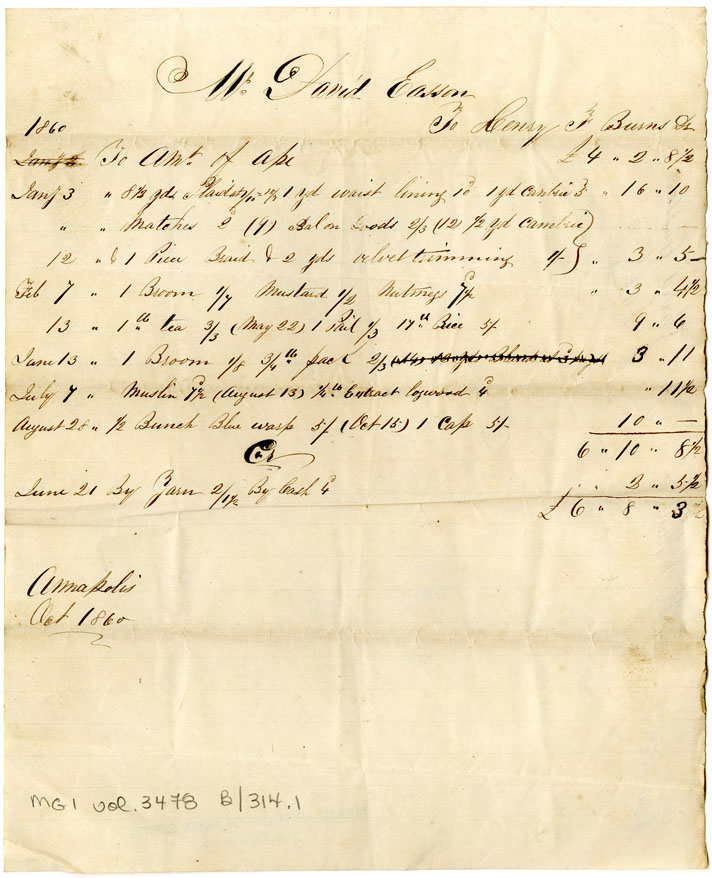 Mr. David Easson
1860 To Henry F Burns Dr
To Amt. of a/c £ 4 " 2 " 8 1/2
Jany 3 " 8 1/2 yds Plaids 1 yd waist lining 1 yd Cambric " 16 " 10
" " Matches (9) Goods 2/3 (12 1/2 yd Cambric)
12 " & 1 Piece Braid & 2 yds velvet trimming 1/ } " 3 " 5 —
Feb 7 " 1 Broom 1/7 Mustard Nutmegs 7 1/2d " 3 " 4 1/2
13 " 1 lb tea 3/3 (May 22) 1 Pail 1/3 17 lb Rice 5/- 9 " 6
June 13 " 1 Broom 1/8 3/4 lb 2/3 3 " 11
July 7 " Muslin 7 1/2d (August 13) lb Extract logwood 4d " 11 1/2
August 28 " 1/2 Bunch Blue warp 5/ (Oct 15) 1 Cap 5/- 10 " —
6 " 10 " 8 1/2
Cr
June 21 By Yarn 2/1 1/2 By Cash 4d " 2 " 5 1/2
£ 6 " 8 " 3 1/2
Annapolis
Oct 1860
MG1 vol. 3478 B/314.1